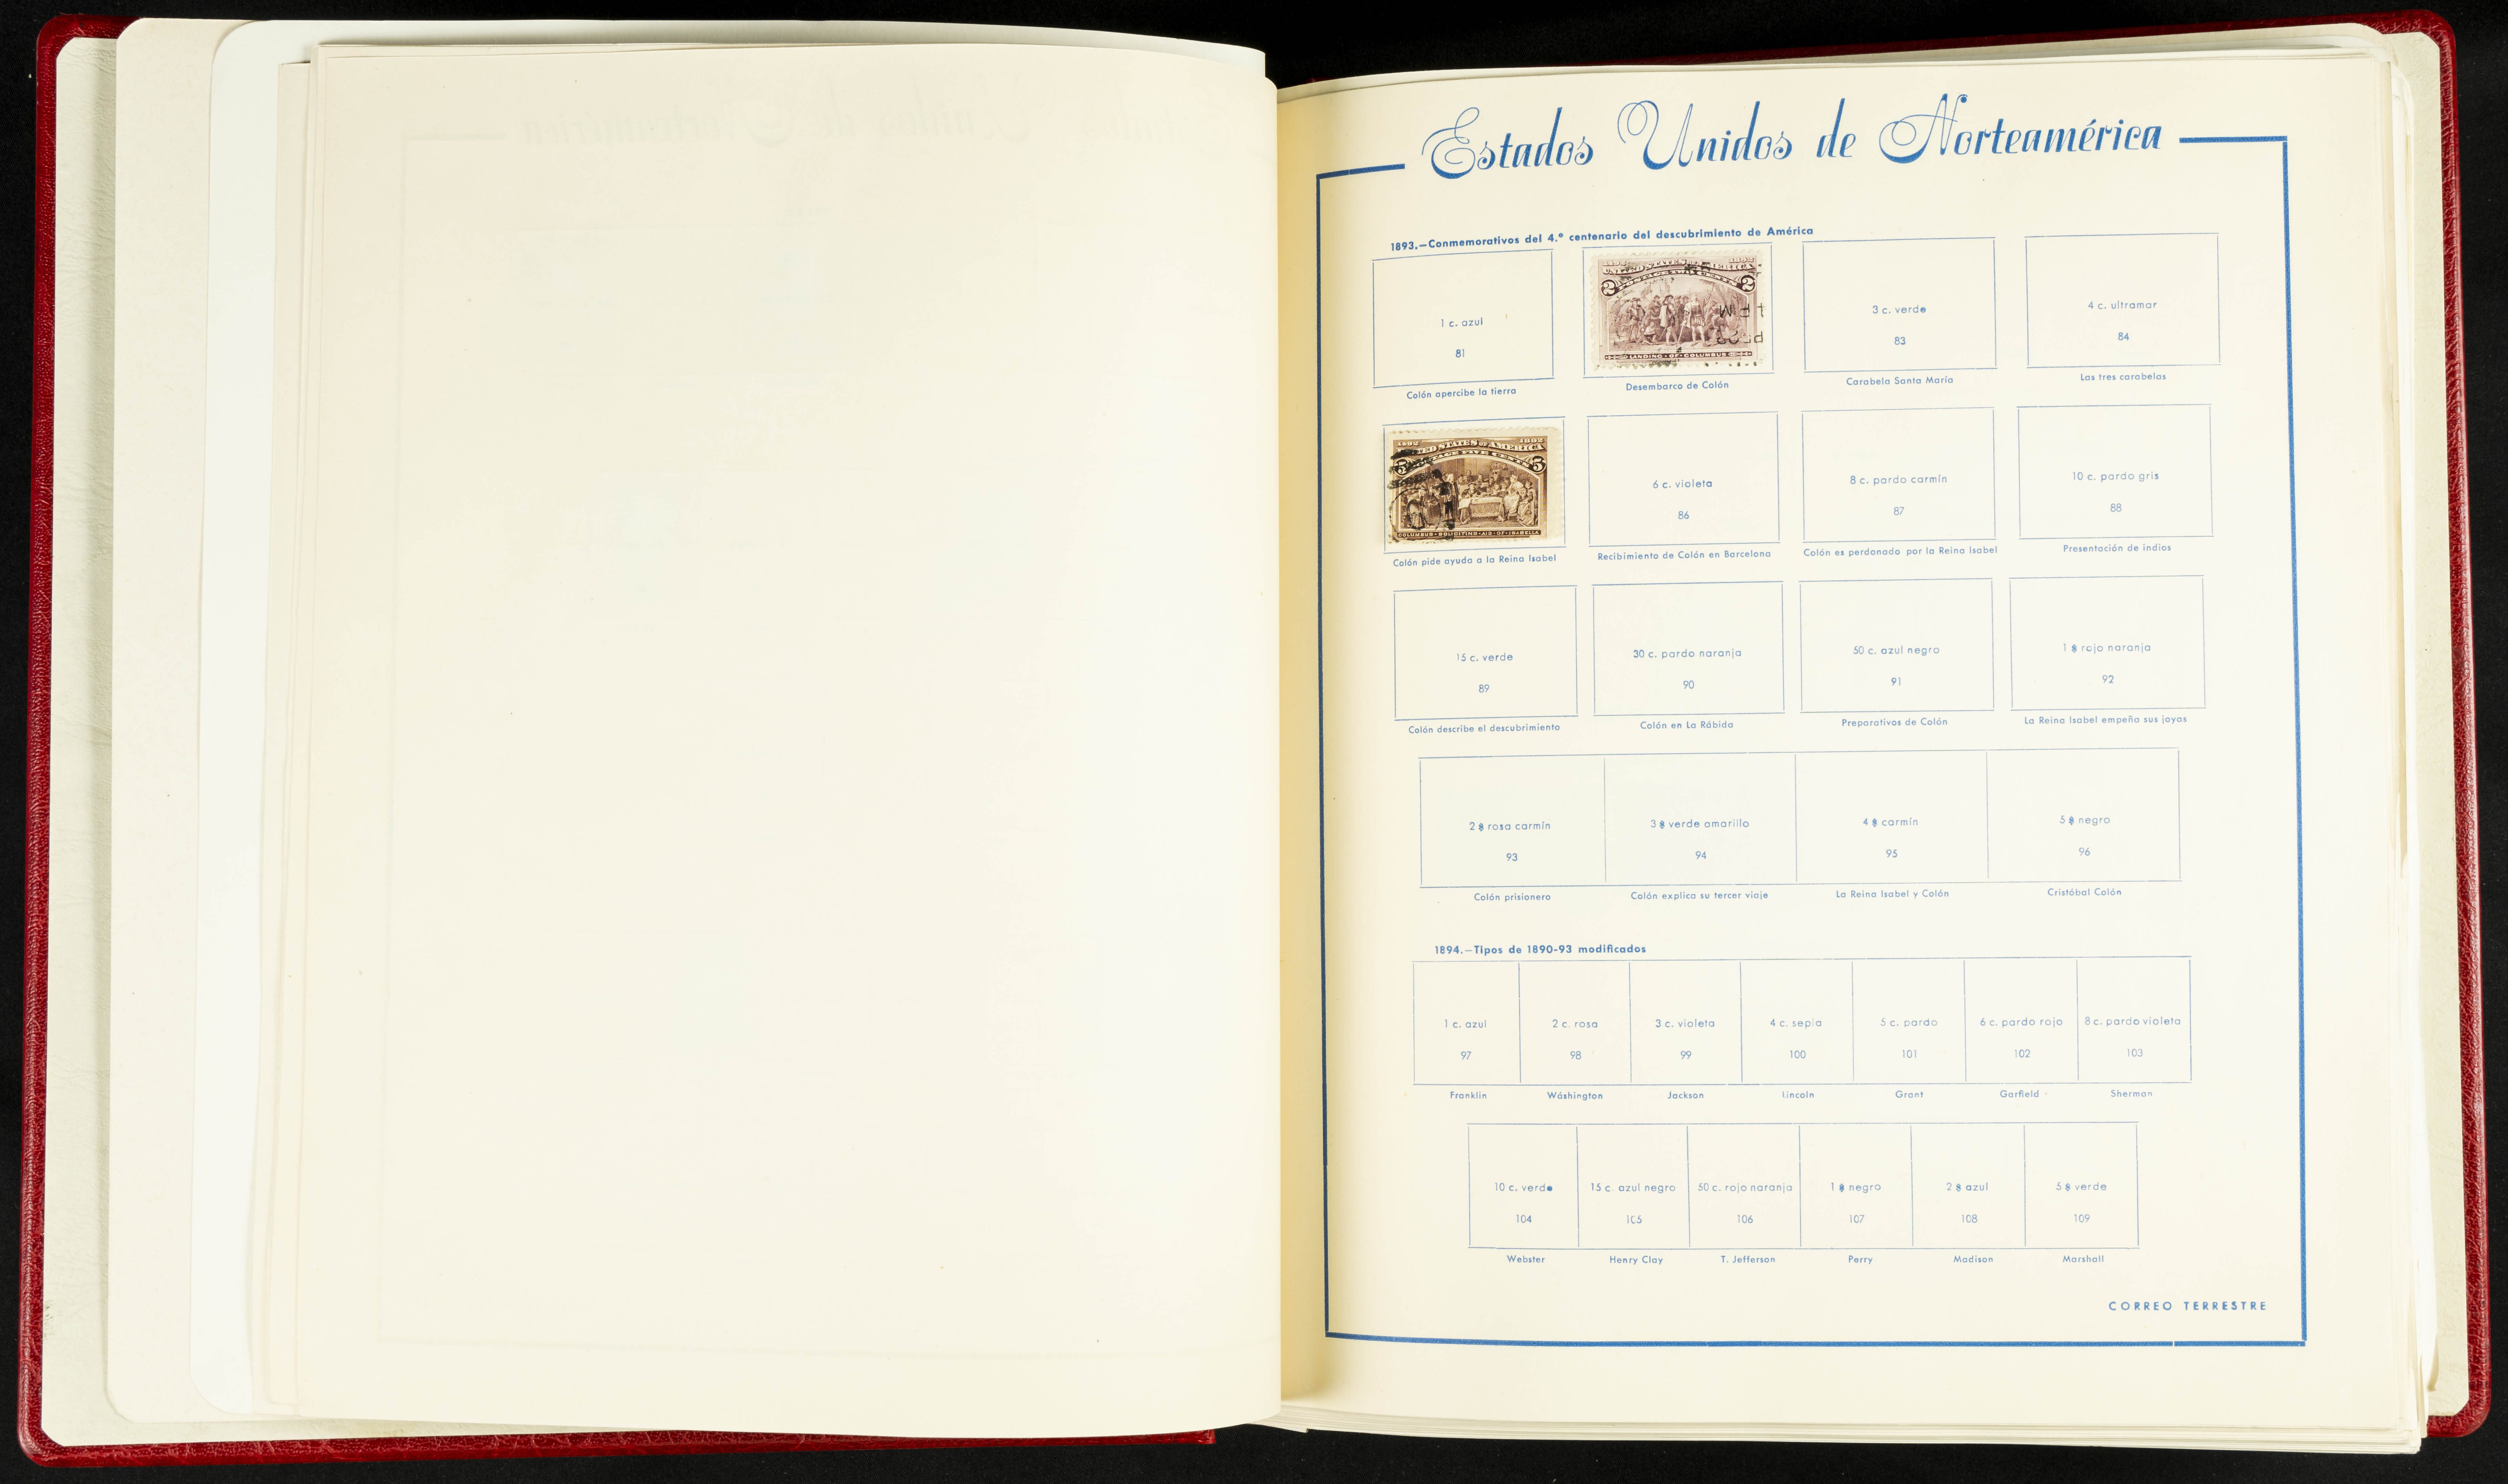 Estados Unidos de Norteamérica
1893.—Conmemorativos del 4.º centenario del descubrimiento de América
1 c. azul
81
Colón apercibe la tierra
1492 1892
UNITED STATES OF AMERICA
POSTAGE TWO CENTS
2 2
LANDING · OF · COLUMBUS
Desembarco de Colón
3 c. verde
83
Carabela Santa María
4 c. ultramar
84
Las tres carabelas
1492 1892
STATES OF AMERICA
FIVE CENTS
5 5
COLUMBUS · SOLICITING · AID · OF · ISABELLA
Colón pide ayuda a la Reina Isabel
6 c. violeta
86
Recibimiento de Colón en Barcelona
8 c. pardo carmín
87
Colón es perdonado por la Reina Isabel
10 c. pardo gris
88
Presentación de indios
15 c. verde
89
Colón describe el descubrimiento
30 c. pardo naranja
90
Colón en La Rábida
50 c. azul negro
91
Preparativos de Colón
1 $ rojo naranja
92
La Reina Isabel empeña sus joyas
2 $ rosa carmín
93
Colón prisionero
3 $ verde amarillo
94
Colón explica su tercer viaje
4 $ carmín
95
La Reina Isabel y Colón
5 $ negro
96
Cristóbal Colón
1894.—Tipos de 1890-93 modificados
1 c. azul
97
Franklin
2 c. rosa
98
Wáshington
3 c. violeta
99
Jackson
4 c. sepia
100
Lincoln
5 c. pardo
101
Grant
6 c. pardo rojo
102
Garfield
8 c. pardo violeta
103
Sherman
10 c. verde
104
Webster
15 c. azul negro
105
Henry Clay
50 c. rojo naranja
106
T. Jefferson
1 $ negro
107
Perry
2 $ azul
108
Madison
5 $ verde
109
Marshall
CORREO TERRESTRE